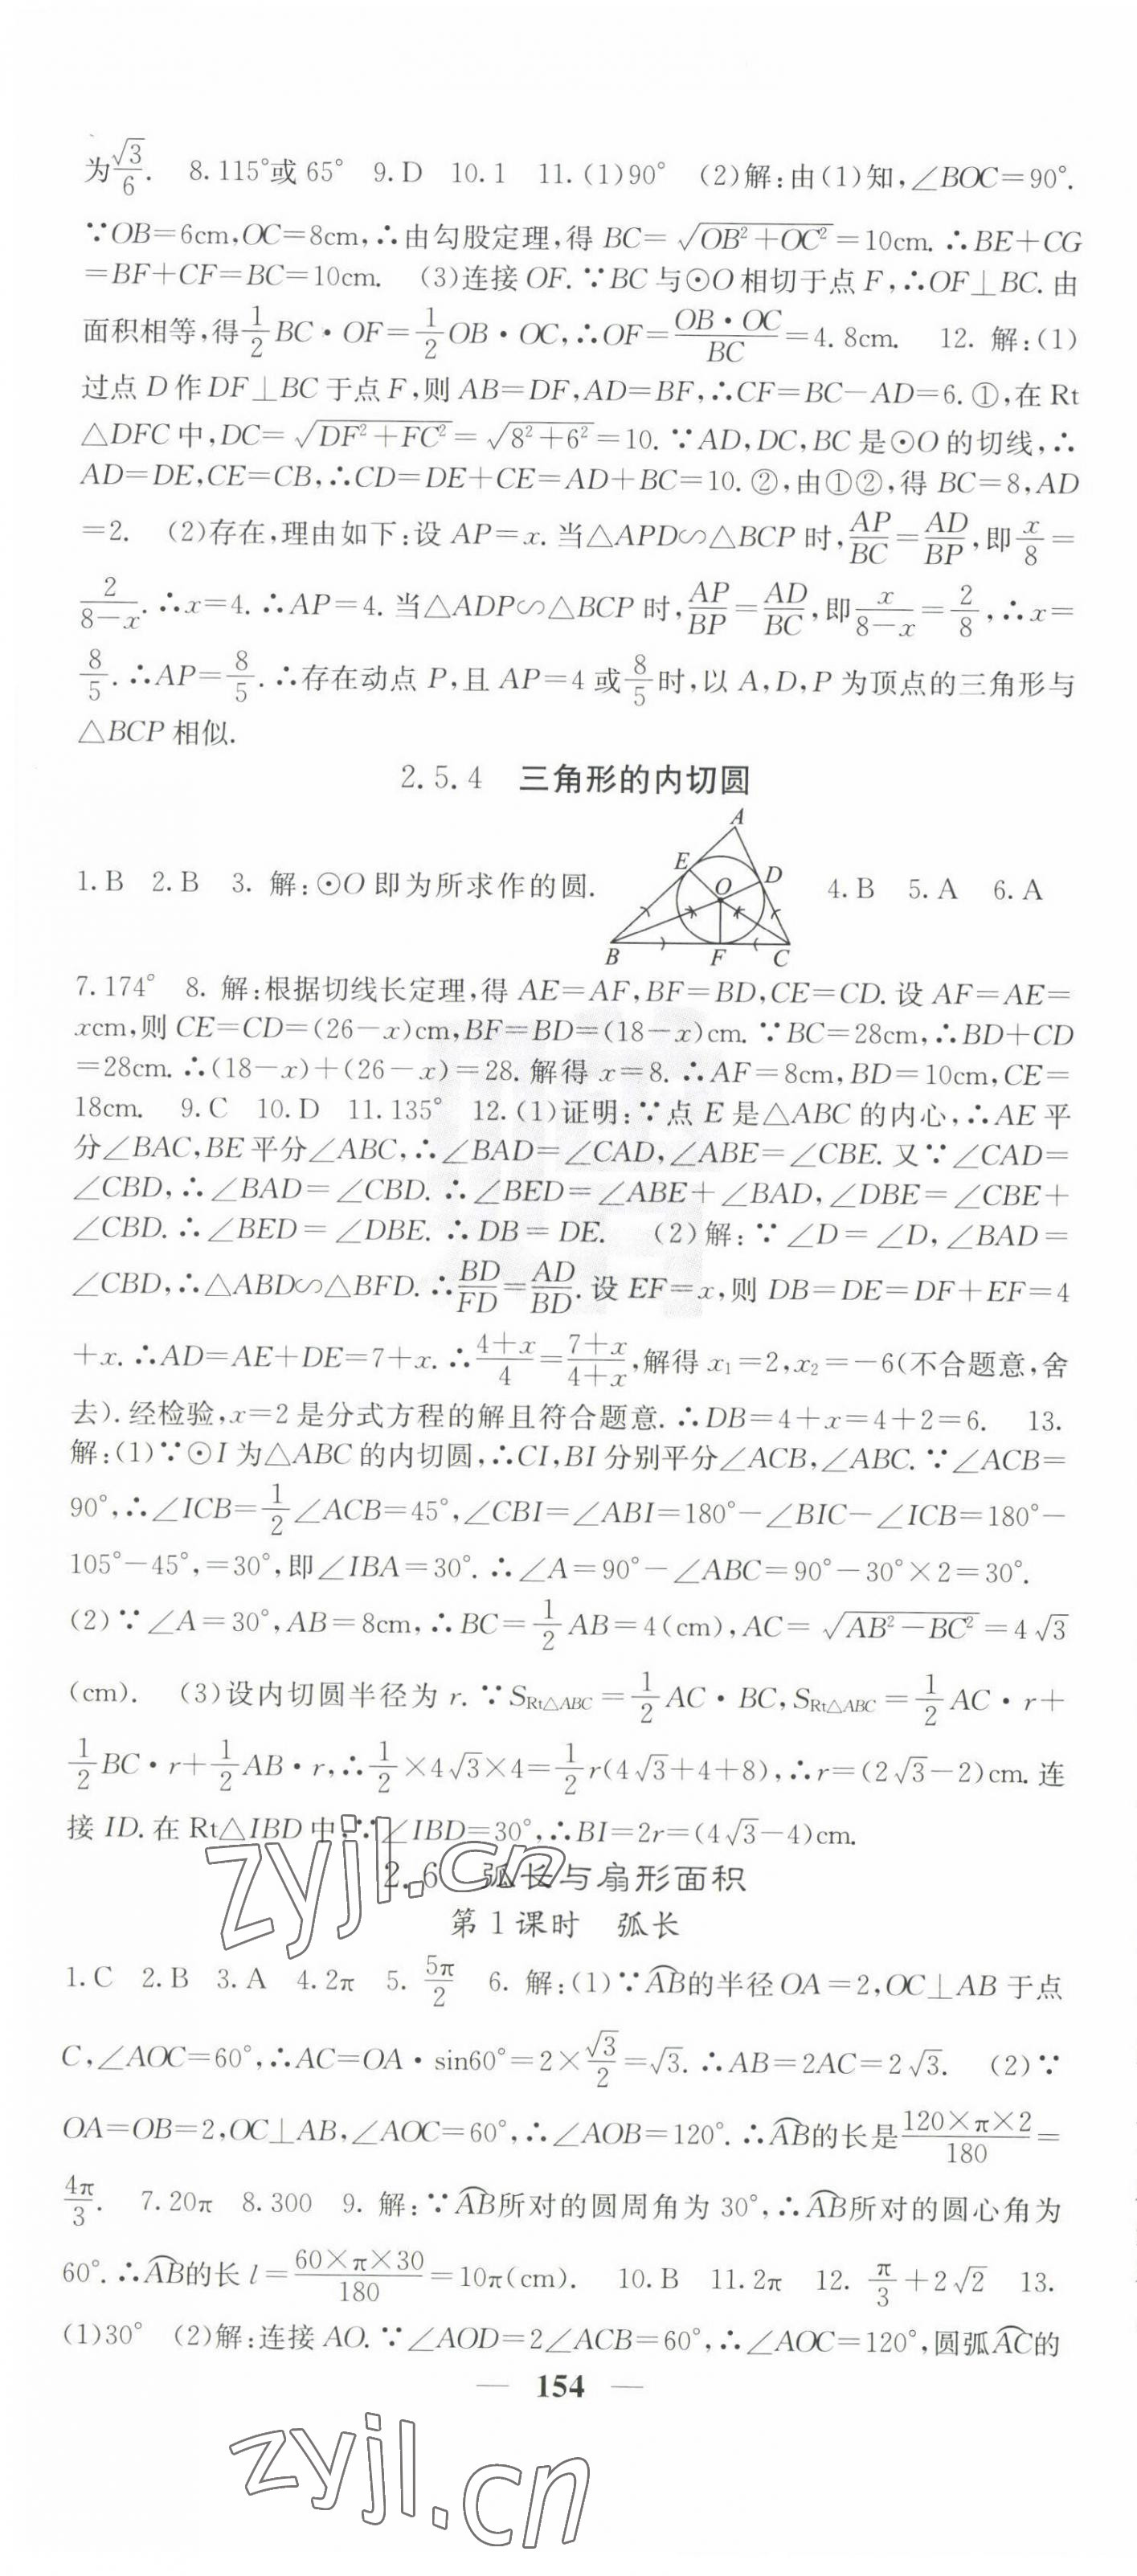 为√3/6. 8.115°或65° 9.D 10.1 11.(1)90° (2)解:由(1)知,∠BOC=90°.
∵OB=6cm,OC=8cm,∴由勾股定理,得 BC=√(OB²+OC²)=10cm.∴BE+CG
=BF+CF=BC=10cm. (3)连接 OF.∵BC 与⊙O 相切于点 F,∴OF⊥BC.由
面积相等,得1/2 BC·OF=1/2 OB·OC,∴OF=(OB·OC)/BC=4.8cm. 12. 解:(1)
过点 D 作 DF⊥BC 于点 F,则 AB=DF,AD=BF,∴CF=BC-AD=6.①,在 Rt
△DFC 中,DC=√(DF²+FC²)=√(8²+6²)=10.∵AD,DC,BC 是⊙O 的切线,∴
AD=DE,CE=CB,∴CD=DE+CE=AD+BC=10.②,由①②,得 BC=8,AD
=2. (2)存在,理由如下:设 AP=x.当△APD∽△BCP 时,AP/BC=AD/BP,即x/8=
2/(8-x).∴x=4.∴AP=4.当△ADP∽△BCP 时,AP/BP=AD/BC,即x/(8-x)=2/8,∴x=
8/5.∴AP=8/5.∴存在动点 P,且 AP=4 或8/5时,以 A,D,P 为顶点的三角形与
△BCP 相似.
2.5.4 三角形的内切圆
1.B 2.B 3. 解:⊙O 即为所求作的圆.
A
E
D
O
B
F
C
4.B 5.A 6.A
7.174° 8. 解:根据切线长定理,得 AE=AF,BF=BD,CE=CD.设 AF=AE=
xcm,则 CE=CD=(26-x)cm,BF=BD=(18-x)cm.∵BC=28cm,∴BD+CD
=28cm.∴(18-x)+(26-x)=28.解得 x=8.∴AF=8cm,BD=10cm,CE=
18cm. 9.C 10.D 11.135° 12.(1)证明:∵点 E 是△ABC 的内心,∴AE 平
分∠BAC,BE 平分∠ABC,∴∠BAD=∠CAD,∠ABE=∠CBE.又∵∠CAD=
∠CBD,∴∠BAD=∠CBD.∴∠BED=∠ABE+∠BAD,∠DBE=∠CBE+
∠CBD.∴∠BED=∠DBE.∴DB=DE. (2)解:∵∠D=∠D,∠BAD=
∠CBD,∴△ABD∽△BFD.∴BD/FD=AD/BD.设 EF=x,则 DB=DE=DF+EF=4
+x.∴AD=AE+DE=7+x.∴(4+x)/4=(7+x)/(4+x),解得 x₁=2,x₂=-6(不合题意,舍
去).经检验,x=2 是分式方程的解且符合题意.∴DB=4+x=4+2=6. 13.
解:(1)∵⊙I 为△ABC 的内切圆,∴CI,BI 分别平分∠ACB,∠ABC.∵∠ACB=
90°,∴∠ICB=1/2∠ACB=45°,∠CBI=∠ABI=180°-∠BIC-∠ICB=180°-
105°-45°,=30°,即∠IBA=30°.∴∠A=90°-∠ABC=90°-30°×2=30°.
(2)∵∠A=30°,AB=8cm,∴BC=1/2 AB=4(cm),AC=√(AB²-BC²)=4√3
(cm). (3)设内切圆半径为 r.∵S Rt△ABC=1/2 AC·BC,S Rt△ABC=1/2 AC·r+
1/2 BC·r+1/2 AB·r,∴1/2×4√3×4=1/2 r(4√3+4+8),∴r=(2√3-2)cm.连
接 ID.在 Rt△IBD 中,∵∠IBD=30°,∴BI=2r=(4√3-4)cm.
2.6 弧长与扇形面积
第1课时 弧长
1.C 2.B 3.A 4.2π 5. 5π/2 6. 解:(1)∵A͡B的半径OA=2,OC⊥AB 于点
C,∠AOC=60°,∴AC=OA·sin60°=2×√3/2=√3.∴AB=2AC=2√3. (2)∵
OA=OB=2,OC⊥AB,∠AOC=60°,∴∠AOB=120°.∴A͡B的长是(120×π×2)/180=
4π/3. 7.20π 8.300 9. 解:∵A͡B所对的圆周角为 30°,∴A͡B所对的圆心角为
60°.∴A͡B的长 l=(60×π×30)/180=10π(cm). 10.B 11.2π 12. π/3+2√2 13.
(1)30° (2)解:连接 AO.∵∠AOD=2∠ACB=60°,∴∠AOC=120°,圆弧A͡C的
— 154 —
zyjl.cn
zyjl.cn